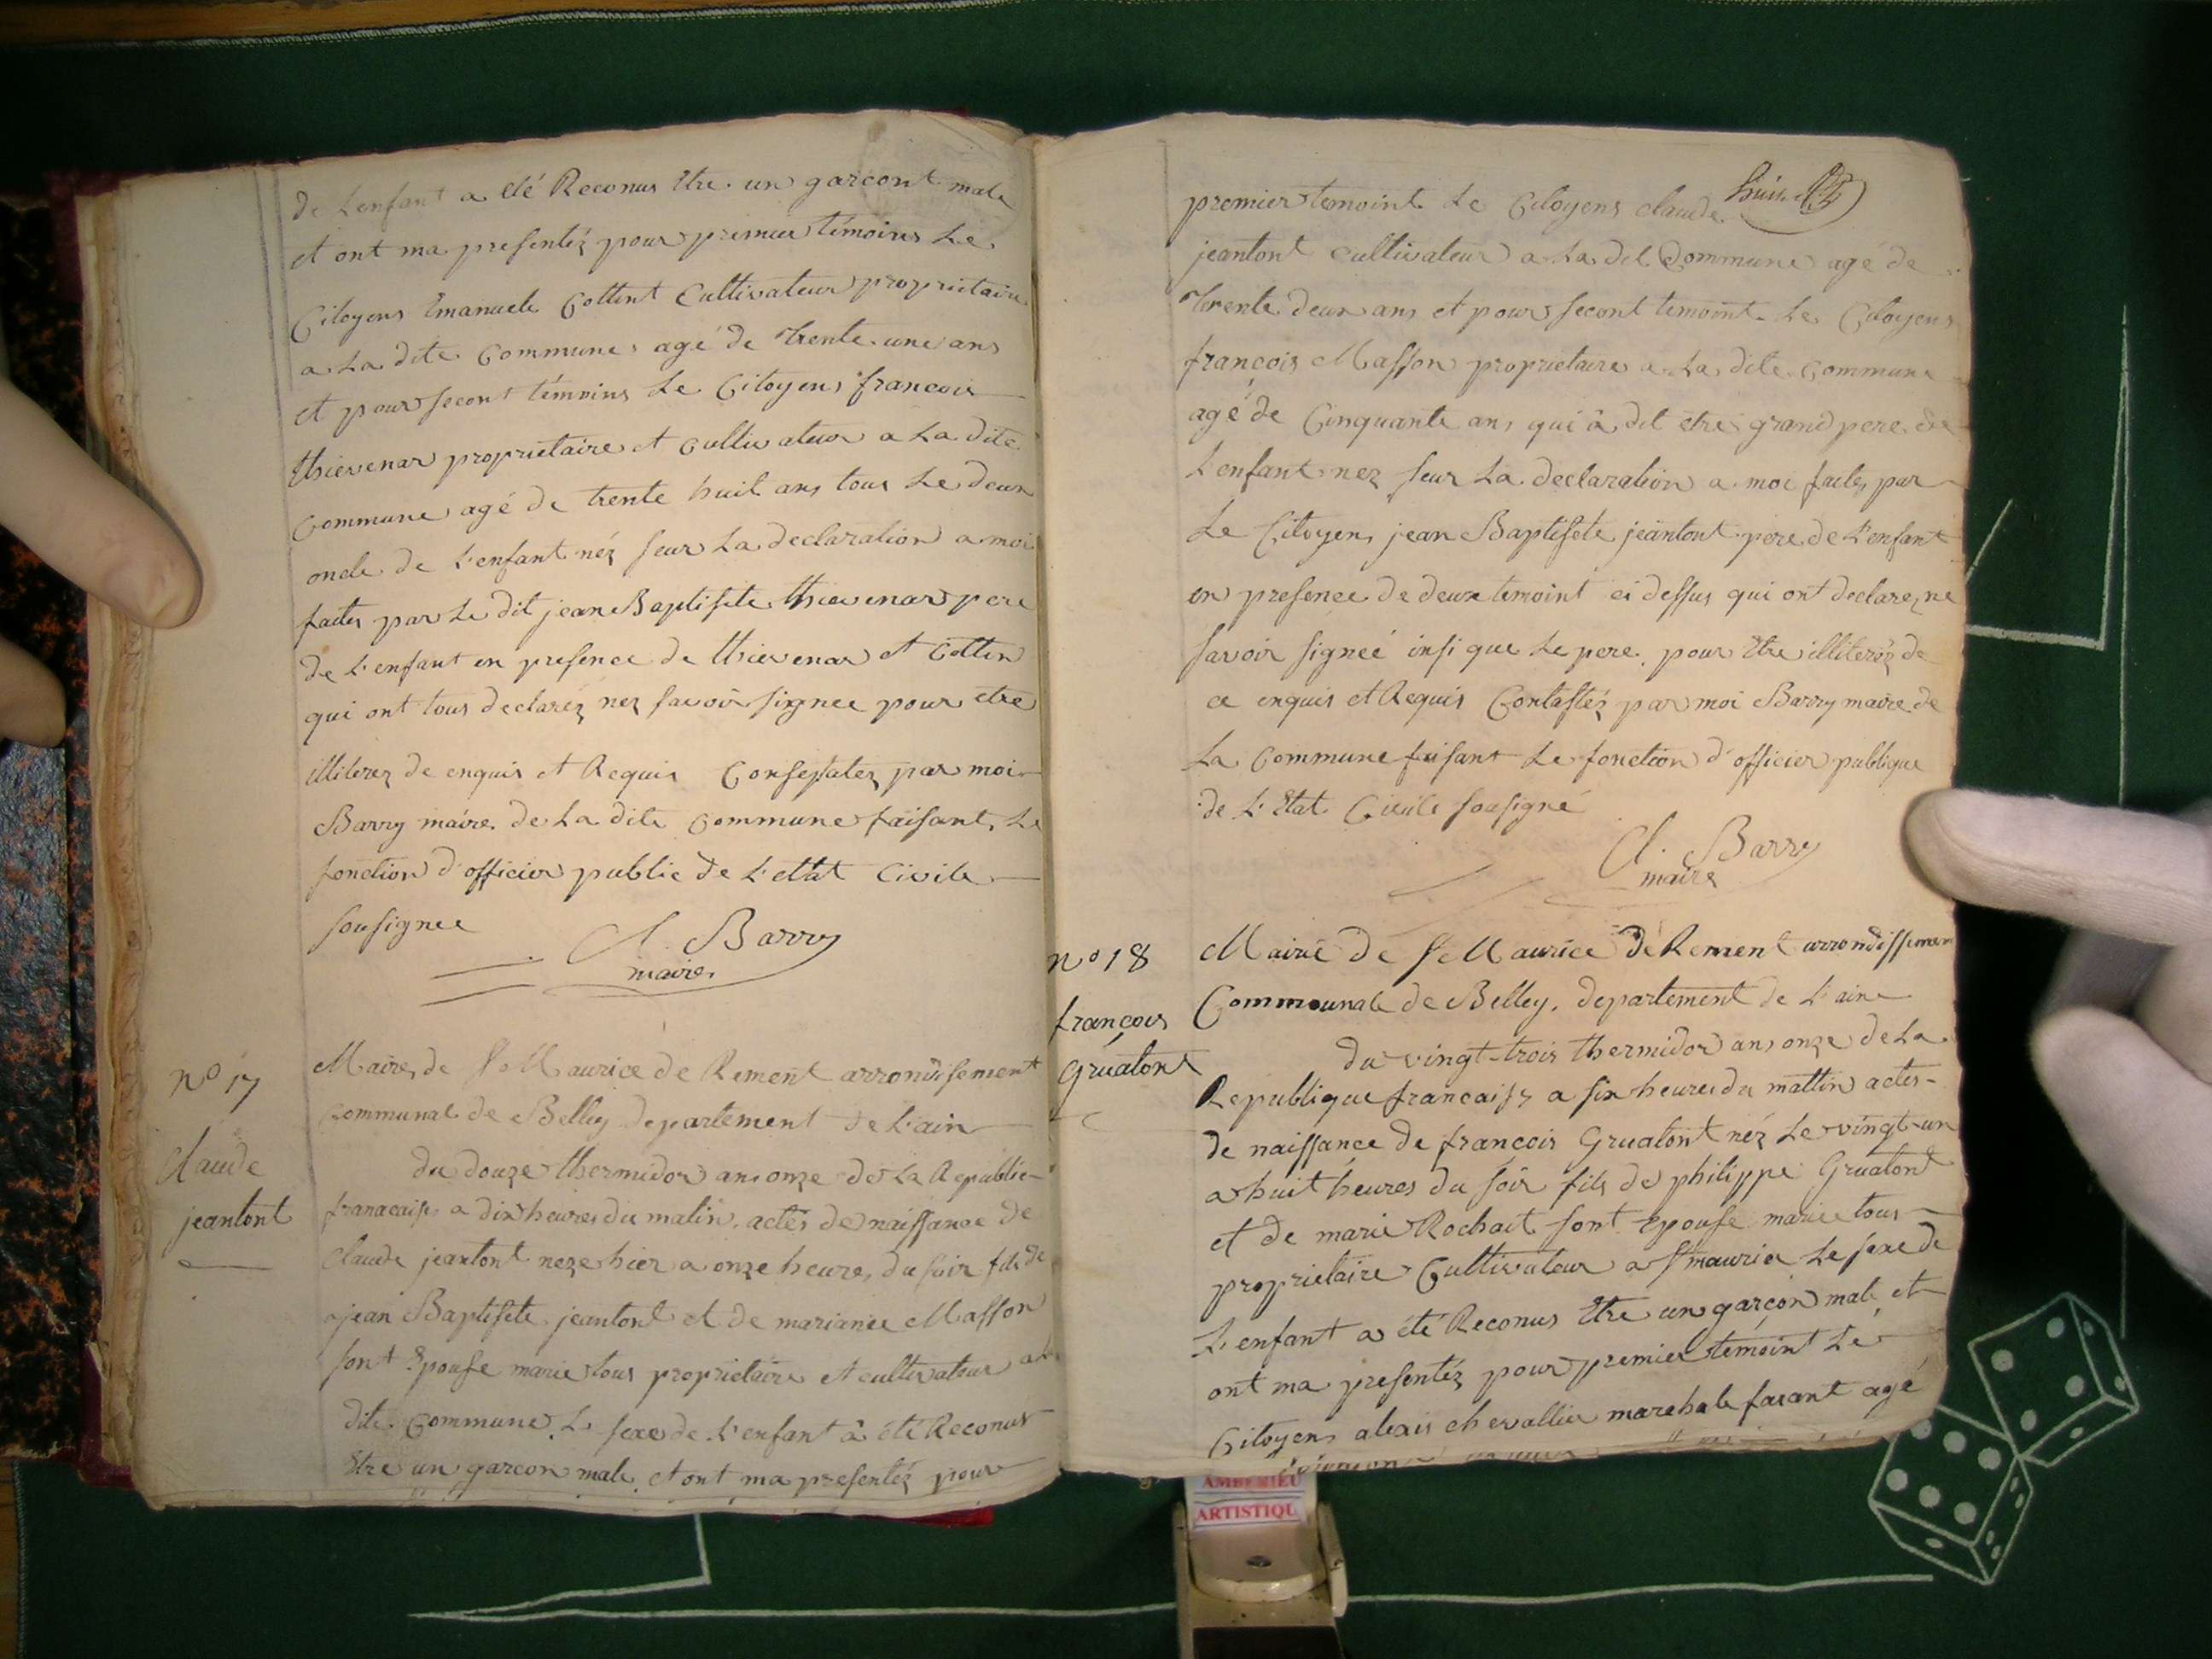 de L'enfant a été Reconus Etre un garcont male
et ont ma presentéz pour premier témoins Le
Citoyens Emanuele Cottint Cultivateur proprietaire
a La dite Commune agé de trente une ans
et pour secont témoins Le Citoyens francois
thievenar proprietaire et Cultivateur a La dite
Commune agé de trente huit ans tous Le deux
oncle de L'enfant néz seur La declaration a moi
faites par Le dit jean Baptisete thievenar pere
de L'enfant en presence de thievenar et Cottin
qui ont tous declaréz nez savoir signee pour etre
illiterez de enquis et Requis par moi
Barry maire de La dite Commune faisant Le
fonction d'officier public de L'ettat Civile
sousignee
Cl. Barry
maire
n° 17
Claude
jeantont
Maire de St Maurice de Rement arrondisement
Communal de Belley departement de L'ain
du douze thermidor ans onze de La Republic
a dix heures du matin actes de naissance de
Claude jeantont neze hier a onze heures du soir fils de
jean Baptisete jeantont et de marianee Masson
sont Epouse marie tous proprietaire et cultivateur a La
dite Commune Le sexe de L'enfant â été Reconut
Etre un garcon male et ont ma presentéz pour
huit
premier temoint Le Citoyens claude
jeantont Cultivateur a La dit Commune agé de
trente deux ans et pour secont temoint Le Citoyens
françois Masson proprietaire a La dite Commune
agé de Cinquante ans qui â dit etre grand pere de
L'enfant nez seur La declaration a moi faites par
Le Citoyens jean Baptisete jeantont pere de L'enfant
en presence de deux temoint ci dessus qui ont declare ne
savoir signeé insi que Le pere pour Etre illiteréz de
ce enquis et Requis Contastéz par moi Barry maire de
La Commune faisant Le fonction d'officier publique
de L'Etat Civile sousigné
Cl. Barry
maire
n° 18
françois
Gruatont
Mairie de St Maurice de Rement arrondissemen
Communale de Belley, departement de L'ain
du vingt-trois thermidor ans onze de La
Republique francaise a six heures du mattin actes
de naissance de francois Gruatont néz Le vingt-un
a huit heures du soir fils de philippe Gruatont
et de marie Rochait sont Epouse mariee tous
proprietaire Cultivateur a St maurice Le sexe de
L'enfant a été Reconus Etre un garçon male et
ont ma presentéz pour premier temoint Le
Citoyens alexis chevallier marchale farant agé
AMBERIEU
ARTISTIQU